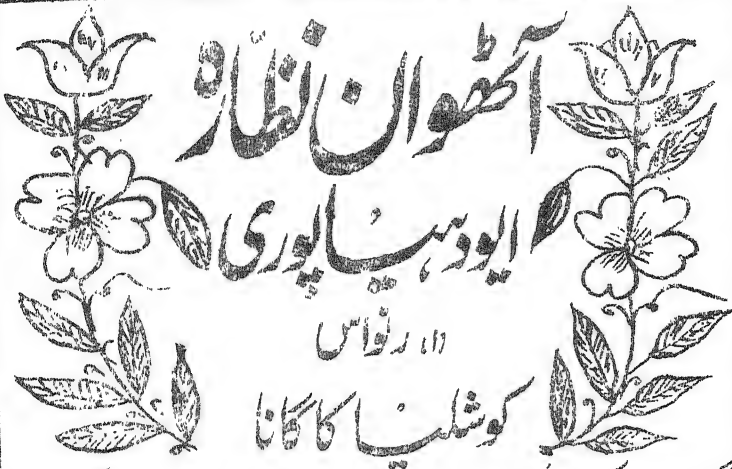 آٹھوان نظارہ
ایودہیاپوری
(۱) رنواس
کوشلیا کا گانا